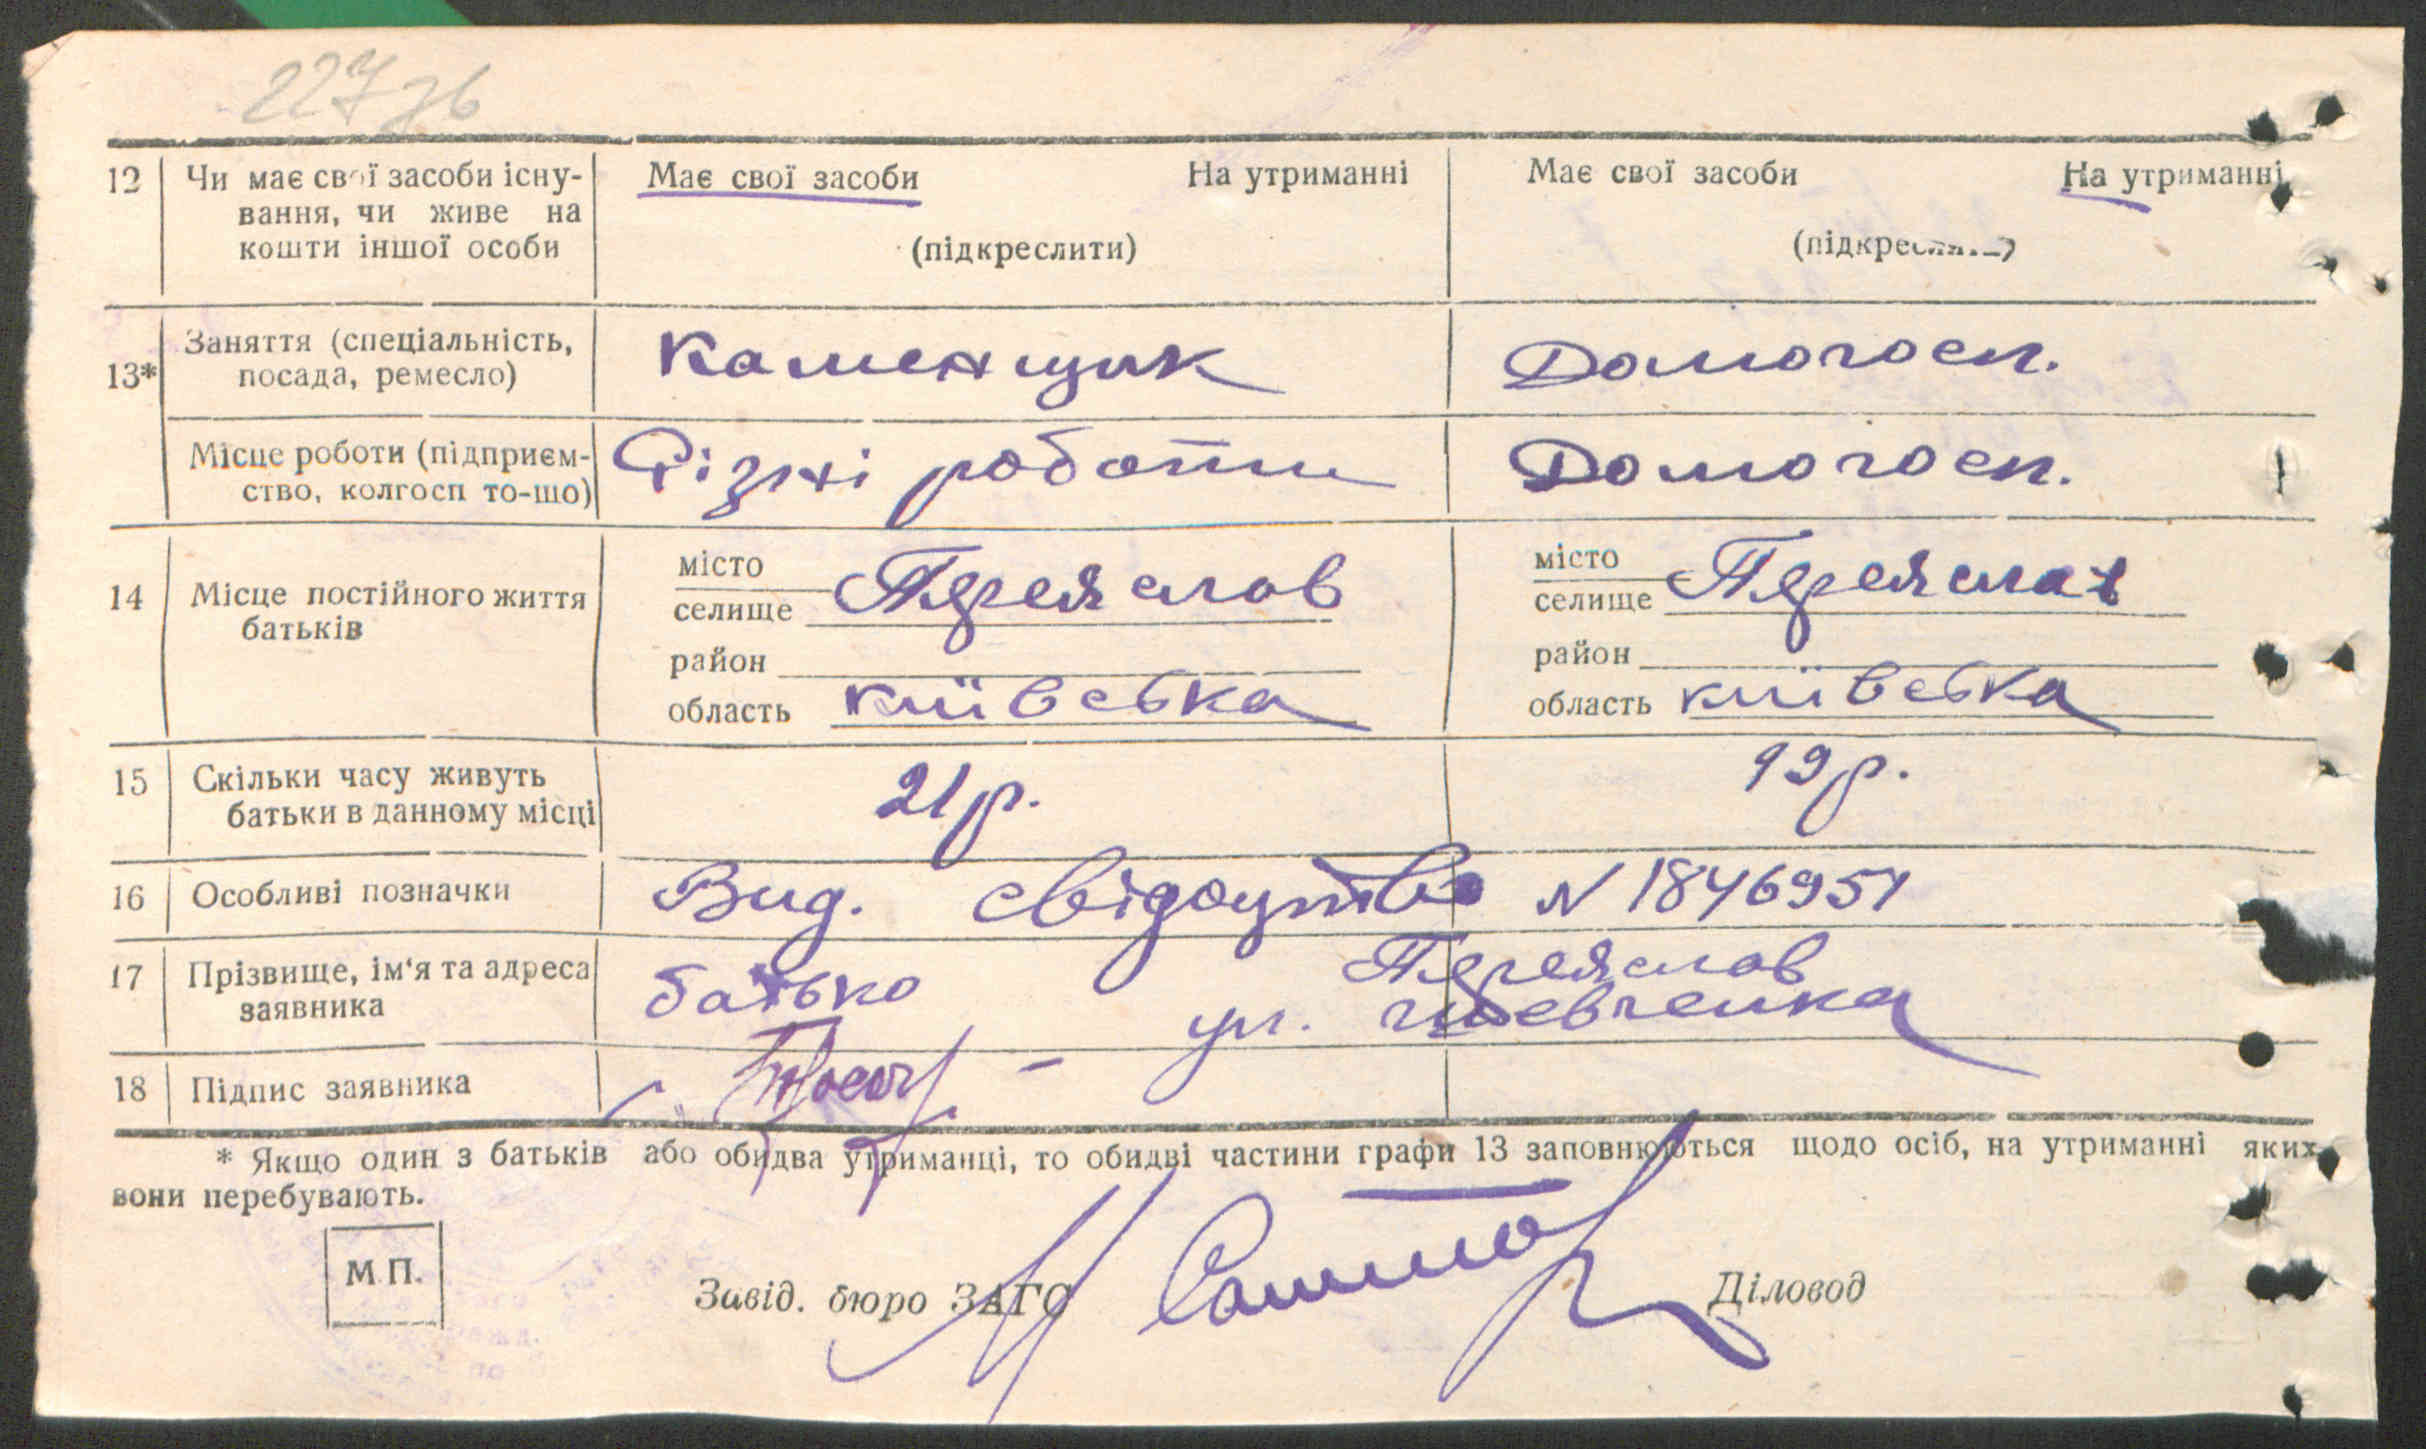 227зв
12 Чи має свої засоби існу- Має свої засоби На утриманні Має свої засоби На утриманні
вання, чи живе на
кошти іншої особи (підкреслити) (підкреслити)
Заняття (спеціальність, Каменщик Домогосп.
13* посада, ремесло)
Місце роботи (підприєм- Різні роботи Домогосп.
ство, колгосп то-що)
місто Переяслав місто Переяслав
14 Місце постійного життя селище селище
батьків район район
область київська область київська
15 Скільки часу живуть 21р. 19р.
батьки в данному місці
16 Особливі позначки Вид. свідоцтво N 1846951
17 Прізвище, ім‘я та адреса батько Переяслав
заявника ул. Шевченка
18 Підпис заявника
* Якщо один з батьків або обидва утриманці, то обидві частини графи 13 заповнюються щодо осіб, на утриманні яких
вони перебувають.
М.П.
Завід. бюро ЗАГС Діловод